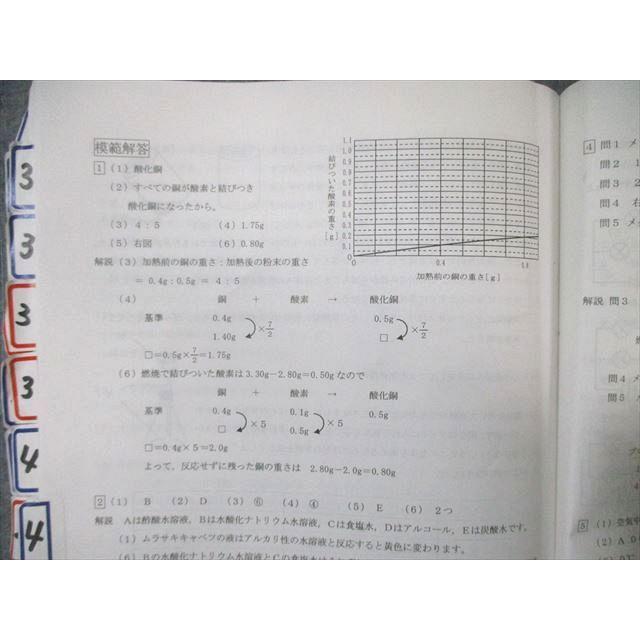 模範解答
1 (1) 酸化銅
(2) すべての銅が酸素と結びつき
酸化銅になったから。
(3) 4:5 (4) 1.75g
(5) 右図 (6) 0.80g
1.1
1.0
0.9
0.8
0.7
0.6
0.5
0.4
0.3
0.2
0.1
0
結びついた酸素の重さ[g]
0 0.4 0.8
加熱前の銅の重さ[g]
解説 (3) 加熱前の銅の重さ:加熱後の粉末の重さ
= 0.4g:0.5g = 4:5
(4) 銅 + 酸素 → 酸化銅
基準 0.4g 0.5g
1.40g ×7/2 □ ×7/2
□=0.5g×7/2=1.75g
(6) 燃焼で結びついた酸素は3.30g-2.80g=0.50gなので
銅 + 酸素 → 酸化銅
基準 0.4g 0.1g 0.5g
□ ×5 0.5g ×5
□=0.4g×5=2.0g
よって,反応せずに残った銅の重さは 2.80g-2.0g=0.80g
2 (1) B (2) D (3) ⑥ (4) ④ (5) E (6) 2つ
解説 Aは酢酸水溶液,Bは水酸化ナトリウム水溶液,Cは食塩水,Dはアルコール,Eは炭酸水です。
(1) ムラサキキャベツの液はアルカリ性の水溶液と反応すると黄色に変わります。
(6) Bの水酸化ナトリウム水溶液とCの食塩水は
4 問1 メ
問2 1
問3 2
問4 右
問5 メ
解説 問3
問4 メ
問5
5 (1) 空気中
(2) A
3
3
3
3
4
4